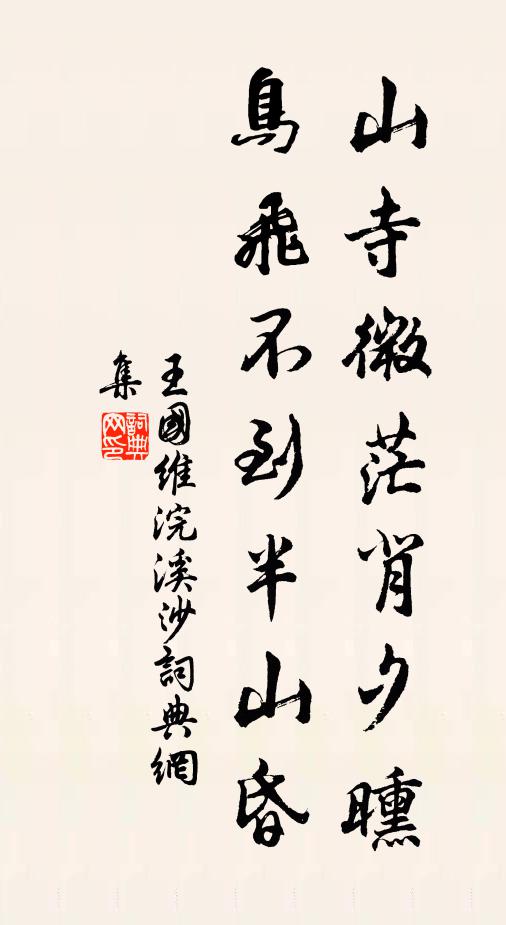 山寺微茫背夕曛
鳥飛不到半山昏
王國維浣溪沙詞典網
集
詞典
网印